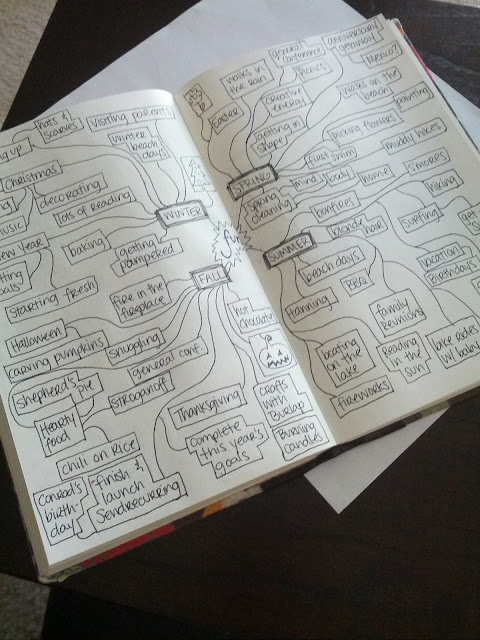 hats &
scarves
visiting parents
winter
beach
days
Christmas
decorating
lots of reading
WINTER
baking
getting
pampered
starting fresh
fire in the
fireplace
FALL
Halloween
carving pumpkins
snuggling
general conf.
shepherd's
pie
stroganoff
Hearty
food
chili on Rice
Conrad's
birth-
day
-finish &
launch
Sendrecurring
Thanksgiving
complete
this year's
goals
hot
chocolate
crafts
with
Burlap
Burning
candles
fun
walks in
the rain
general
conference
anniversary
getaway
Mexico?
picnics
Easter
creative
energy
walks on the
beach
painting
getting in
shape
picking flowers
SPRING
first swim
muddy hikes
spring
cleaning
mind
body
home
smores
hiking
bonfires
SUMMER
blonde
hair
surfing
beach days
BBQ
vacation
Birthdays
tanning
family
reunions
boating
on the
lake
Reading
in the
sun
lake rides
w/ baby
fireworks